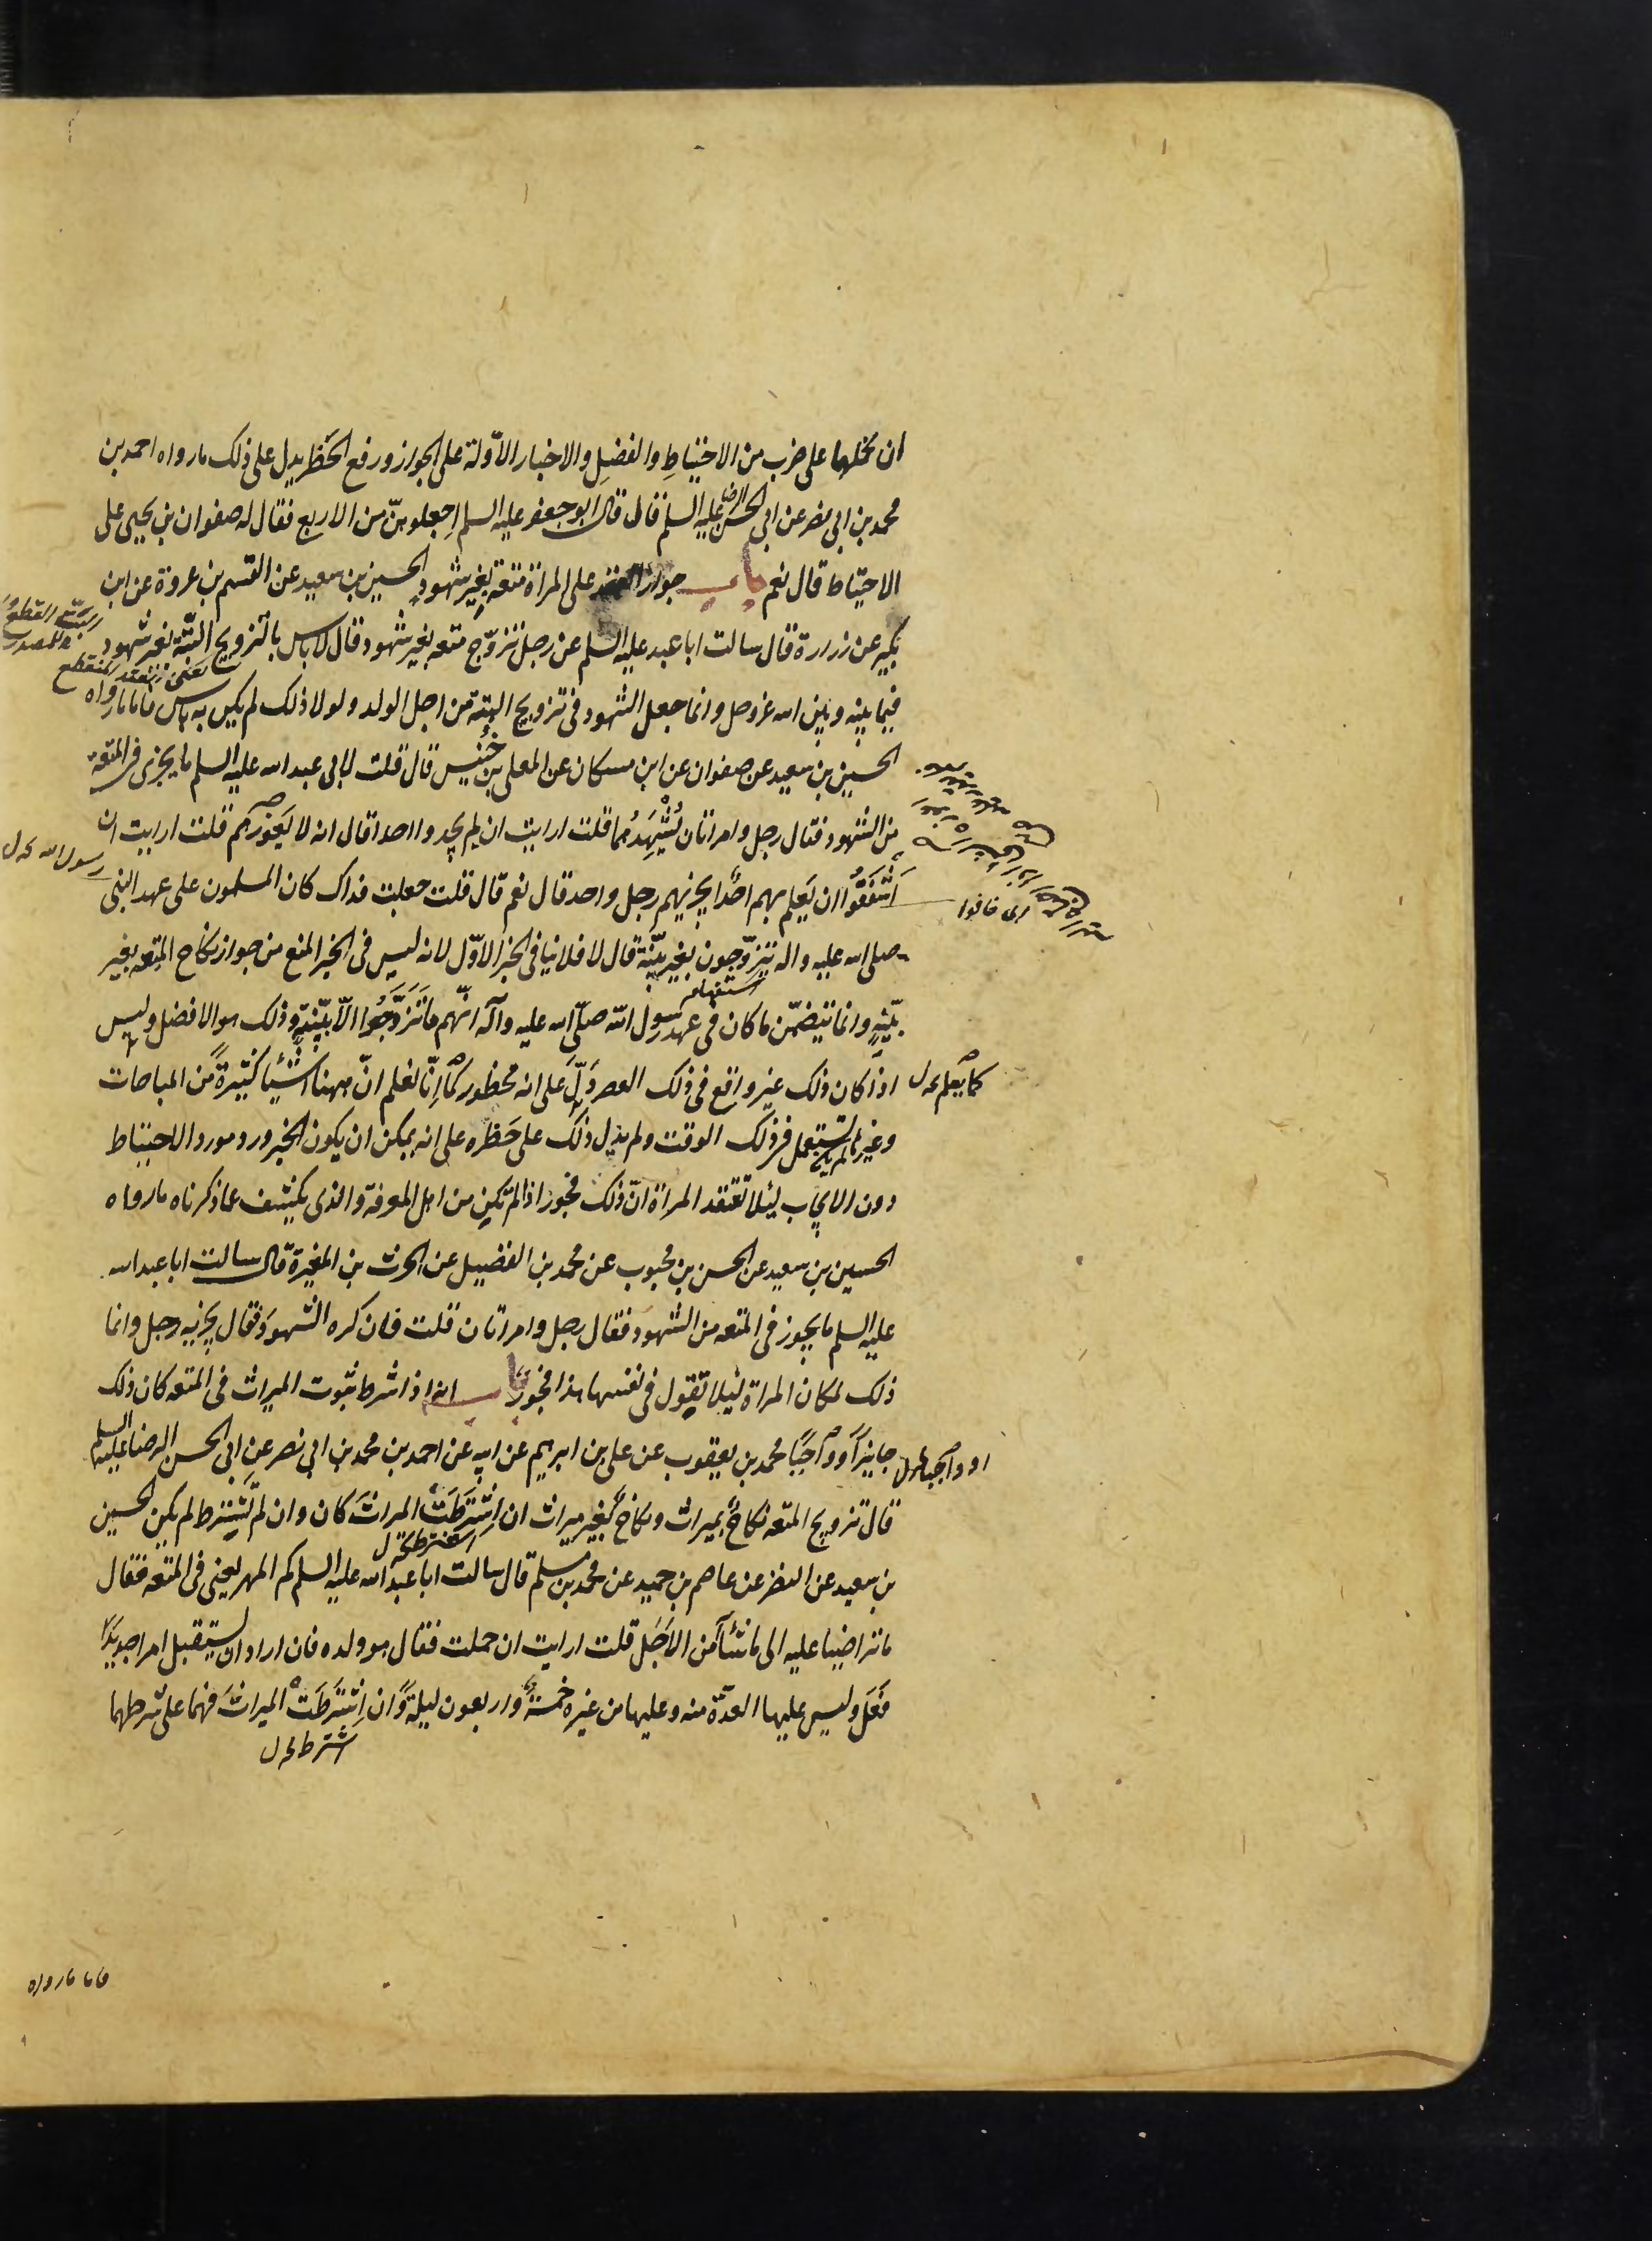 ان نحملها على ضرب من الاحتياطِ والفضلِ والاخبار الاوّلة على الجواز ورفع الحَظر يدل على ذلك ما رواه احمد بن
محمد بن ابى نصر عن ابى الحسن الرضا عليه السلم قال قال ابو جعفر عليه السلم اِجعلوهنّ من الاربع فقال له صفوان بن يحيى على
الاحتياط قال نعم باب جواز العقد على المراة متعة بغير شهود الحسين بن سعيد عن القسم بن عروة عن ابن
بكير عن زرارة قال سالت ابا عبد عليه السلم عن رجل تزوّج متعه بغير شهود قال لا باس بالتزويج البتّة بغير شهود
فيما بينه وبين الله عز وجل وانما جعل الشهود فى تزويج البتة من اجل الولد ولولا ذلك لم يكن به باس فاما ما رواه
الحسين بن سعيد عن صفوان عن ابن مسكان عن المعلى بن خُنيس قال قلت لابى عبد الله عليه السلم ما يجزى فى المتعة
من الشهود فقال رجل وامراتان يُشْهِدُهما قلت ارايت ان لم يجدوا احدا قال انه لا يَعوزهم قلت ارايت ان
اَشْفَقُوا ان يَعلم بهم احَدٌ ايجزيهم رجل واحد قال نعم قال قلت جعلت فداك كان المسلمون على عهد النبى
رسول الله خ ل
اى خافوا
صلى الله عليه واله يتزوّجون بغير بيّنة قال لا فلا ينافى الخبر الاوّل لانه ليس فى الخبر المنع من جواز نكاح المتعه بغير
بيّنةٍ وانما يتضمّن ما كان فى عهد رسول الله صلّى الله عليه وآله انّهم ما تَزَوَّجُوا الّا ببيّنةٍ وذلك هو الافضل وليس
اذا كان ذلك غير واقع فى ذلك العصر دَلّ على انه محظور كما اِنّا نعلم انّ ههنا اشيا كثيرةً من المباحات
كما يعلم خ ل
وغيرها لم تستعمل فى ذلك الوقت ولم يدل ذلك على حَظره على انه يمكن ان يكون الخبر ورد مورد الاحتياط
دون الايجاب لئلا تعتقد المراة انّ ذلك فجور اذا لم تكن من اهل المعرفة والذى يكشف عما ذكرناه ما رواه
الحسين بن سعيد عن الحسن بن محبوب عن محمد بن الفضيل عن الحرث بن المغيرة قال سالت ابا عبد الله
عليه السلم ما يجوز فى المتعه من الشهود فقال رجل وامراتان قلت فان كره الشهود فقال يجزيه رجل وانما
ذلك لمكان المراة لئلا تقول فى نفسها هذا فجور باب انه اذا شرط ثبوت الميراث فى المتعه كان ذلك
جايزاً وواجبًا محمد بن يعقوب عن على بن ابرهيم عن ابيه عن احمد بن محمد بن ابى نصر عن ابى الحسن الرضا عليه السلم
او واجبا خ ل
قال تزويج المتعه نكاحٌ بميراث ونكاحٌ بغير ميراث ان اِشْتَرَطَتْ الميراثَ كان وان لم تَشترط لم يكن الحسين
بن سعيد عن النضر عن عاصم بن حميد عن محمد بن مسلم قال سالت ابا عبد الله عليه السلم كم المهر يعنى فى المتعه فقال
ما تراضيا عليه الى ما شآا من الاَجَل قلت ارايت ان حملت فقال هو ولده فان اراد ان يستقبل امرا جديدًا
فَعَلَ وليس عليها العدّة منه وعليها من غيره خمسةٌ واربعون ليلةً وان اِشْتَرَطَتْ الميراثَ فهما على شرطهما
اشترط خ ل
فاما ما رواه